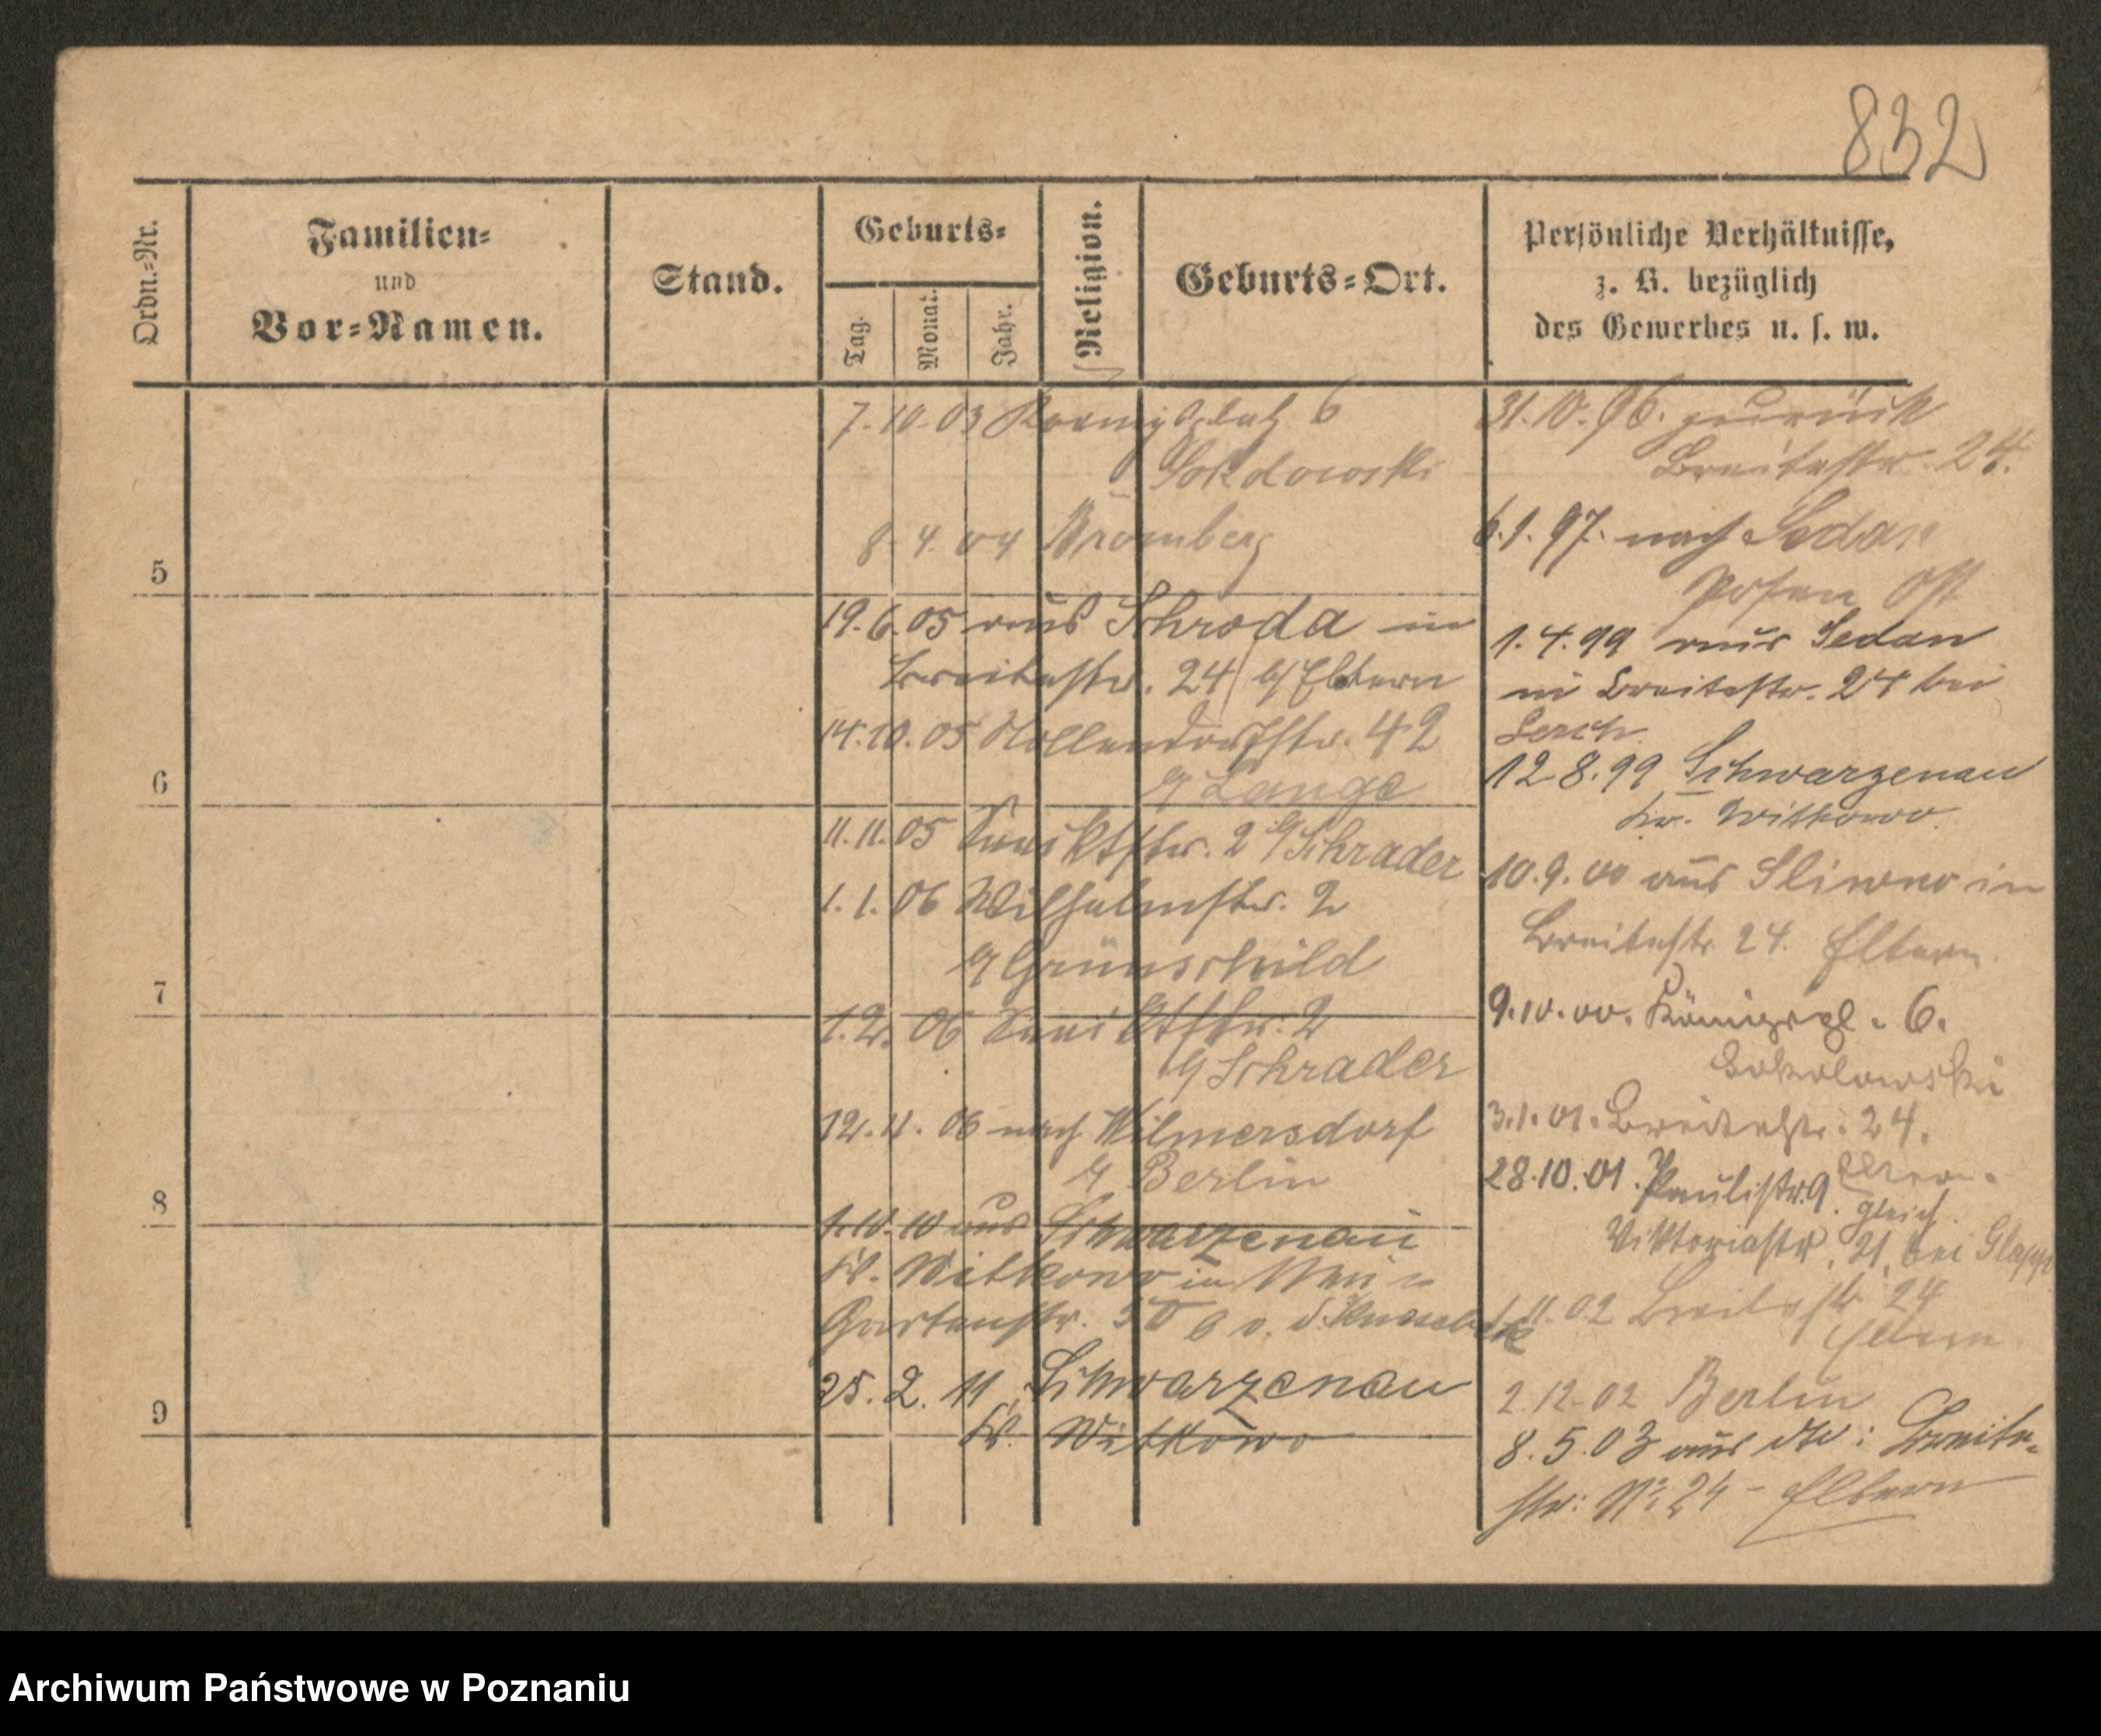 832
Ordn.=Nr.
Familien=
und
Vor=Namen.
Stand.
Geburts=
Tag.
Monat.
Jahr.
Religion.
Geburts=Ort.
Persönliche Verhältnisse,
z. B. bezüglich
des Gewerbes u. s. w.
5
6
7
8
9
7.10.03 6
8 4. 04 Bromberg
19.6.05 aus Schroda in
Breitestr. 24 b/ Eltern
14.10.05 Nollendorfstr. 42
b/ Lange
11.11.05 2 b/ Schrader
1.1.06 Wilhelmstr. 2
b/ Grünschild
1.2.06 2
b/ Schrader
12.11.06 nach Wilmersdorf
b/ Berlin
1.10.10 aus Schwarzenau
Kr. Witkowo in
Gartenstr. b v. d.
25.2.11 Schwarzenau
Kr. Witkowo
31.10.96. zurück
Breitestr. 24.
6.1.97. nach Sedan
Posen Ost
1.4.99 aus Sedan
in Breitestr. 24 bei
12.8.99 Schwarzenau
Kr. Witkowo.
10.9.00 aus Sliwno in
Breitestr 24. Eltern.
9.10.00. Königspl. 6.
Sokolowski
3.1.01. Breitestr. 24.
Eltern.
28.10.01. Paulistr. 9. gleich
Viktoriastr. 21. bei
11.02 Breitestr 24
Eltern
2.12.02 Berlin
8.5.03 aus Breite=
str: No 24 - Eltern
Archiwum Państwowe w Poznaniu